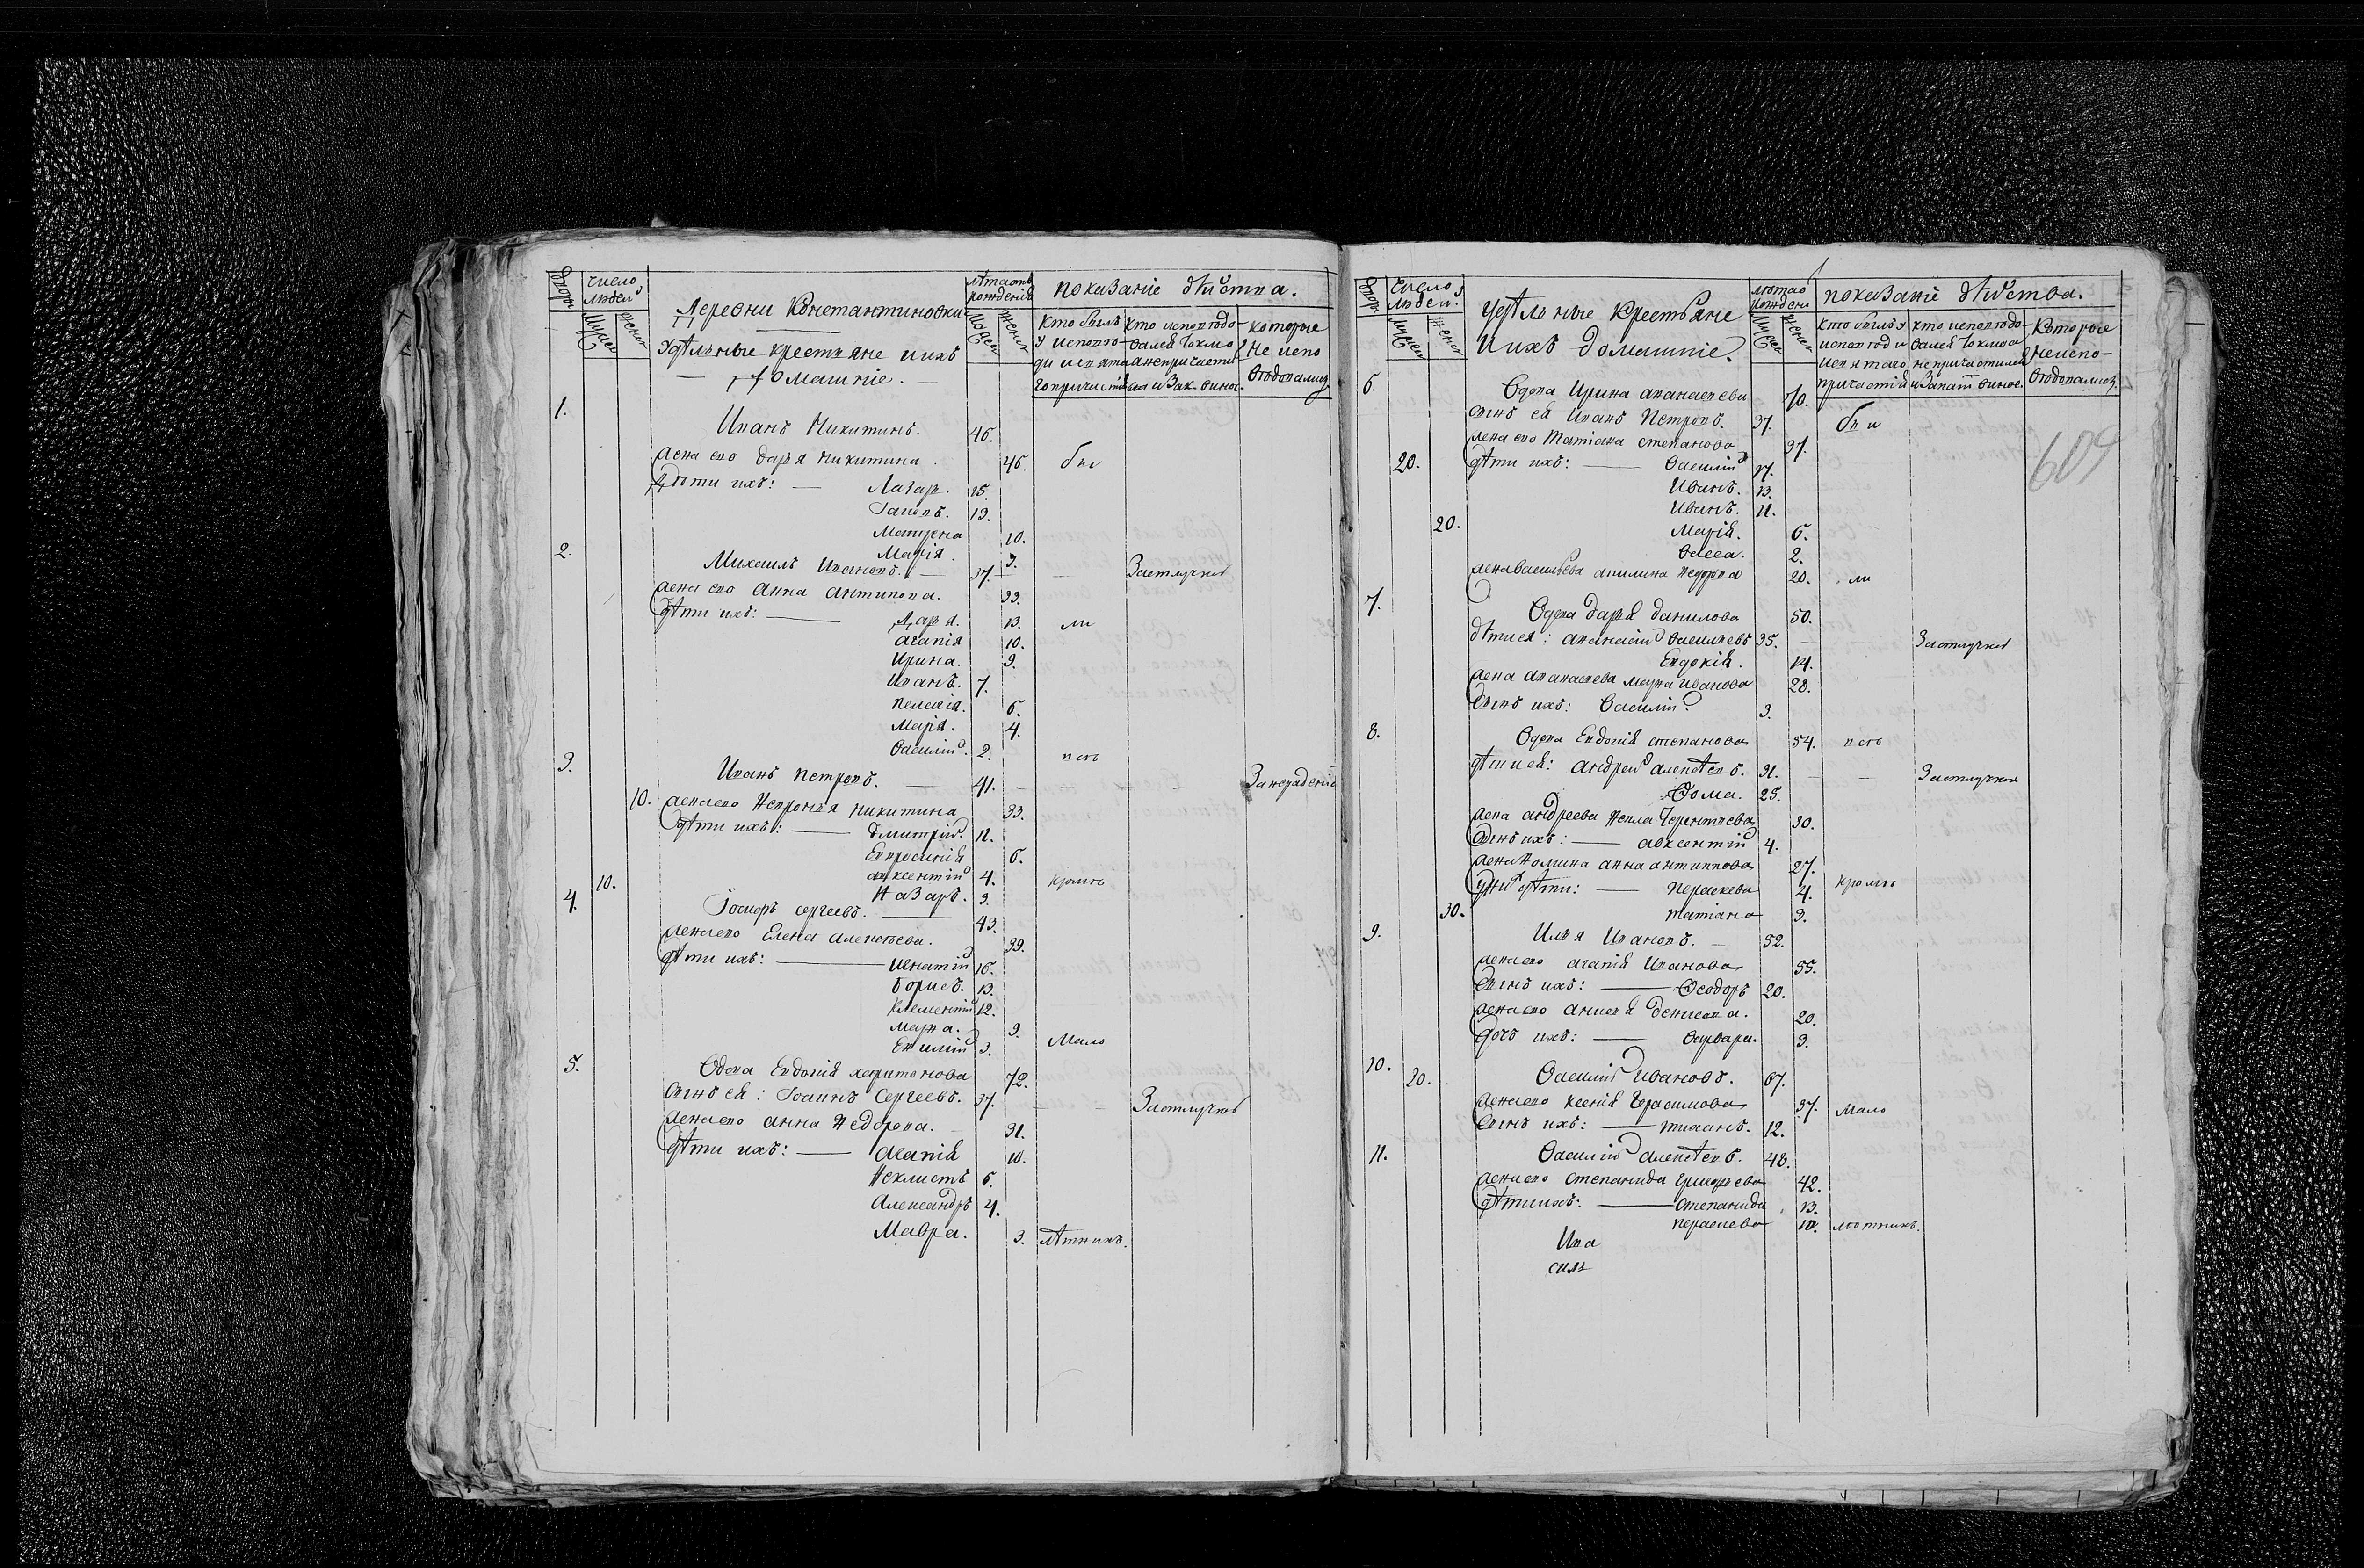 Дворы
число людей
Мужеск
женск
Деревни Константиновки
Удѣльные крестьяне и ихъ
домашніе.
лѣта отъ рожденія
Мужеск
женск
показаніе дѣйства.
Кто былъ у исповѣди и св. таинъ причастія
Кто исповѣдовался токмо а не причастился и за какою виною.
которые не исповѣдовались
1. Иванъ Никитинъ. 46.
жена его Дарья Никитина. 46. бы
Дѣти ихъ: — Лазарь. 15.
13.
Матрена 10.
Марія. 3.
2. Михаилъ Ивановъ. — 37. За отлучкой
жена его Анна Антипова. 33.
дѣти ихъ: — Дарья. 13. ли
Агапія 10.
Ирина. 9.
Иванъ. 7.
Пелагія. 6.
Марія. 4.
Василій. 2. всѣ
3. Иванъ Петровъ. — 41. — За нерадѣніе
10. жена его Ѳевронья Никитина 33.
дѣти ихъ: — Дмитрій. 11.
Евпросинія 6.
Авксентій 4. кромѣ
10. Назаръ. 3.
4. Іосифъ Сергеевъ. — 43.
жена его Елена Алексѣева. 39.
дѣти ихъ: — Игнатій 16.
Борисъ. 13.
Климентій 12.
Марѳа. 9.
Евѳимій 3. мало
5. Вдова Евдокія Харитонова 72.
Сынъ ея: Іоаннъ Сергеевъ. 37. — За отлучкой
жена его Анна Ѳедорова. 31.
дѣти ихъ: — Агапія 10.
Ѳеклистъ 6.
Александръ 4.
Мавра. 3. лѣтнихъ.
Дворы
Число людей.
Мужеск
женск
Удѣльные Крестьяне
и ихъ домашніе.
лѣта отъ рожденія
Мужеск
женск
показаніе дѣйства.
Кто былъ у исповѣди и св. таинъ причастія
кто исповѣдовался токмо а не причастился и за какою виною.
Которые не исповѣдовались.
609
6. Вдова Ирина Аѳанасьева 70.
сынъ ея Иванъ Петровъ. 37. бы
жена его Татіана Степанова 37.
20. дѣти ихъ: — Василій 17.
Иванъ. 13.
Иванъ. 11.
20. Марія. 6.
Васса. 2.
жена Васильева Акилина Ѳедорова 20. ли
7. Вдова Дарья Данилова 50.
дѣти ея: Аѳанасій Васильевъ 35. — — За отлучкой
Евдокія. 14.
жена Аѳанасьева Марѳа Иванова 28.
Сынъ ихъ: Василій. 3.
8. Вдова Евдокія Степанова 54. всѣ
дѣти ея: Андрей Алексѣевъ. 31. — — За отлучкой
Ѳома. 25.
жена Андреева Ѳекла Терентьева 30.
Сынъ ихъ: — Авксентій 4.
жена Ѳомина Анна Антипова 27.
у нихъ дѣти: — Параскева 4. кромѣ
30. Татіана 3.
9. Илья Ивановъ. — 52.
жена его Агапія Иванова 55.
Сынъ ихъ: — Ѳеодоръ 20.
жена его Анисія Денисова. 20.
дочь ихъ: — Варвара. 3.
10. 30. Василій Ивановъ. 67.
жена его Ксенія Герасимова 37. мало
Сынъ ихъ: — 12.
11. Василій Алексѣевъ. 48.
жена его Степанида Григорьева 42.
дѣти ихъ: — Степанида 13.
Параскева 10. лѣтнихъ.
Ива
силь